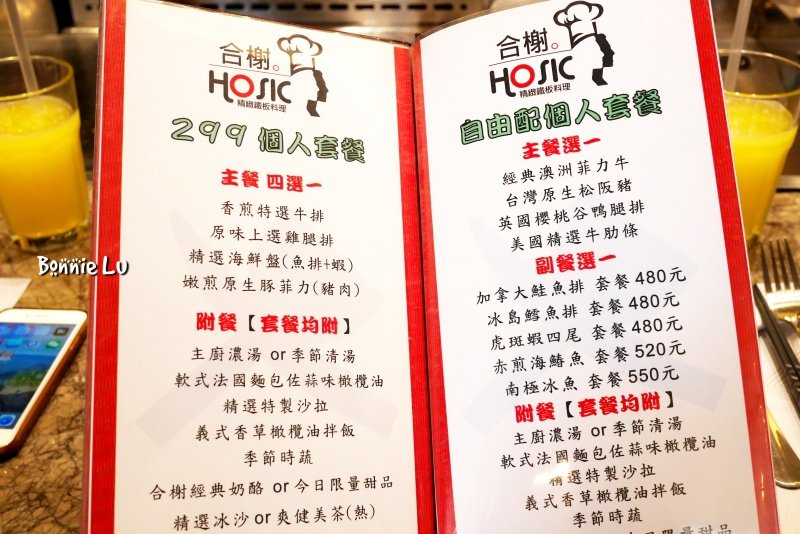 合榭。
HOSIC
精緻鐵板料理
299 個人套餐
主餐 四選一
香煎特選牛排
原味上選雞腿排
精選海鮮盤(魚排+蝦)
嫩煎原生豚菲力(豬肉)
附餐【套餐均附】
主廚濃湯 or 季節清湯
軟式法國麵包佐蒜味橄欖油
精選特製沙拉
義式香草橄欖油拌飯
季節時蔬
合榭經典奶酪 or 今日限量甜品
精選冰沙 or 爽健美茶(熱)
合榭。
HOSIC
精緻鐵板料理
自由配個人套餐
主餐選一
經典澳洲菲力牛
台灣原生松阪豬
英國櫻桃谷鴨腿排
美國精選牛肋條
副餐選一
加拿大鮭魚排 套餐 480元
冰島鱈魚排 套餐 480元
虎斑蝦四尾 套餐 480元
赤煎海鰆魚 套餐 520元
南極冰魚 套餐 550元
附餐【套餐均附】
主廚濃湯 or 季節清湯
軟式法國麵包佐蒜味橄欖油
精選特製沙拉
義式香草橄欖油拌飯
季節時蔬
日限量甜品
Bonnie Lu